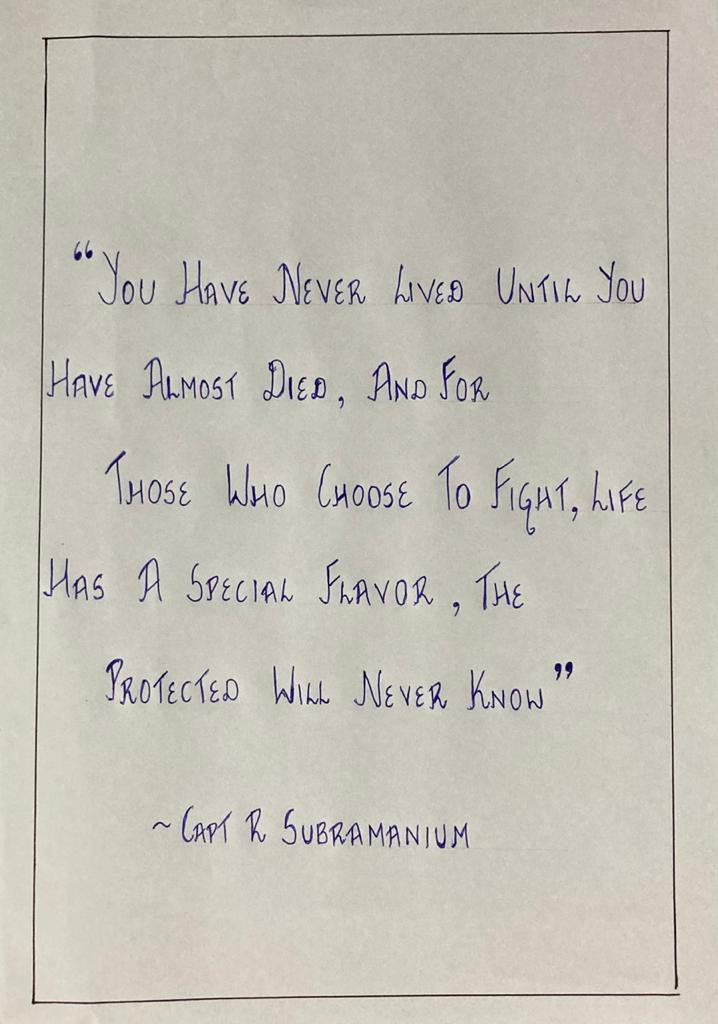 “You Have Never Lived Until You
Have Almost Died, And For
Those Who Choose To Fight, Life
Has A Special Flavor, The
Protected Will Never Know”
~ Capt R Subramanium